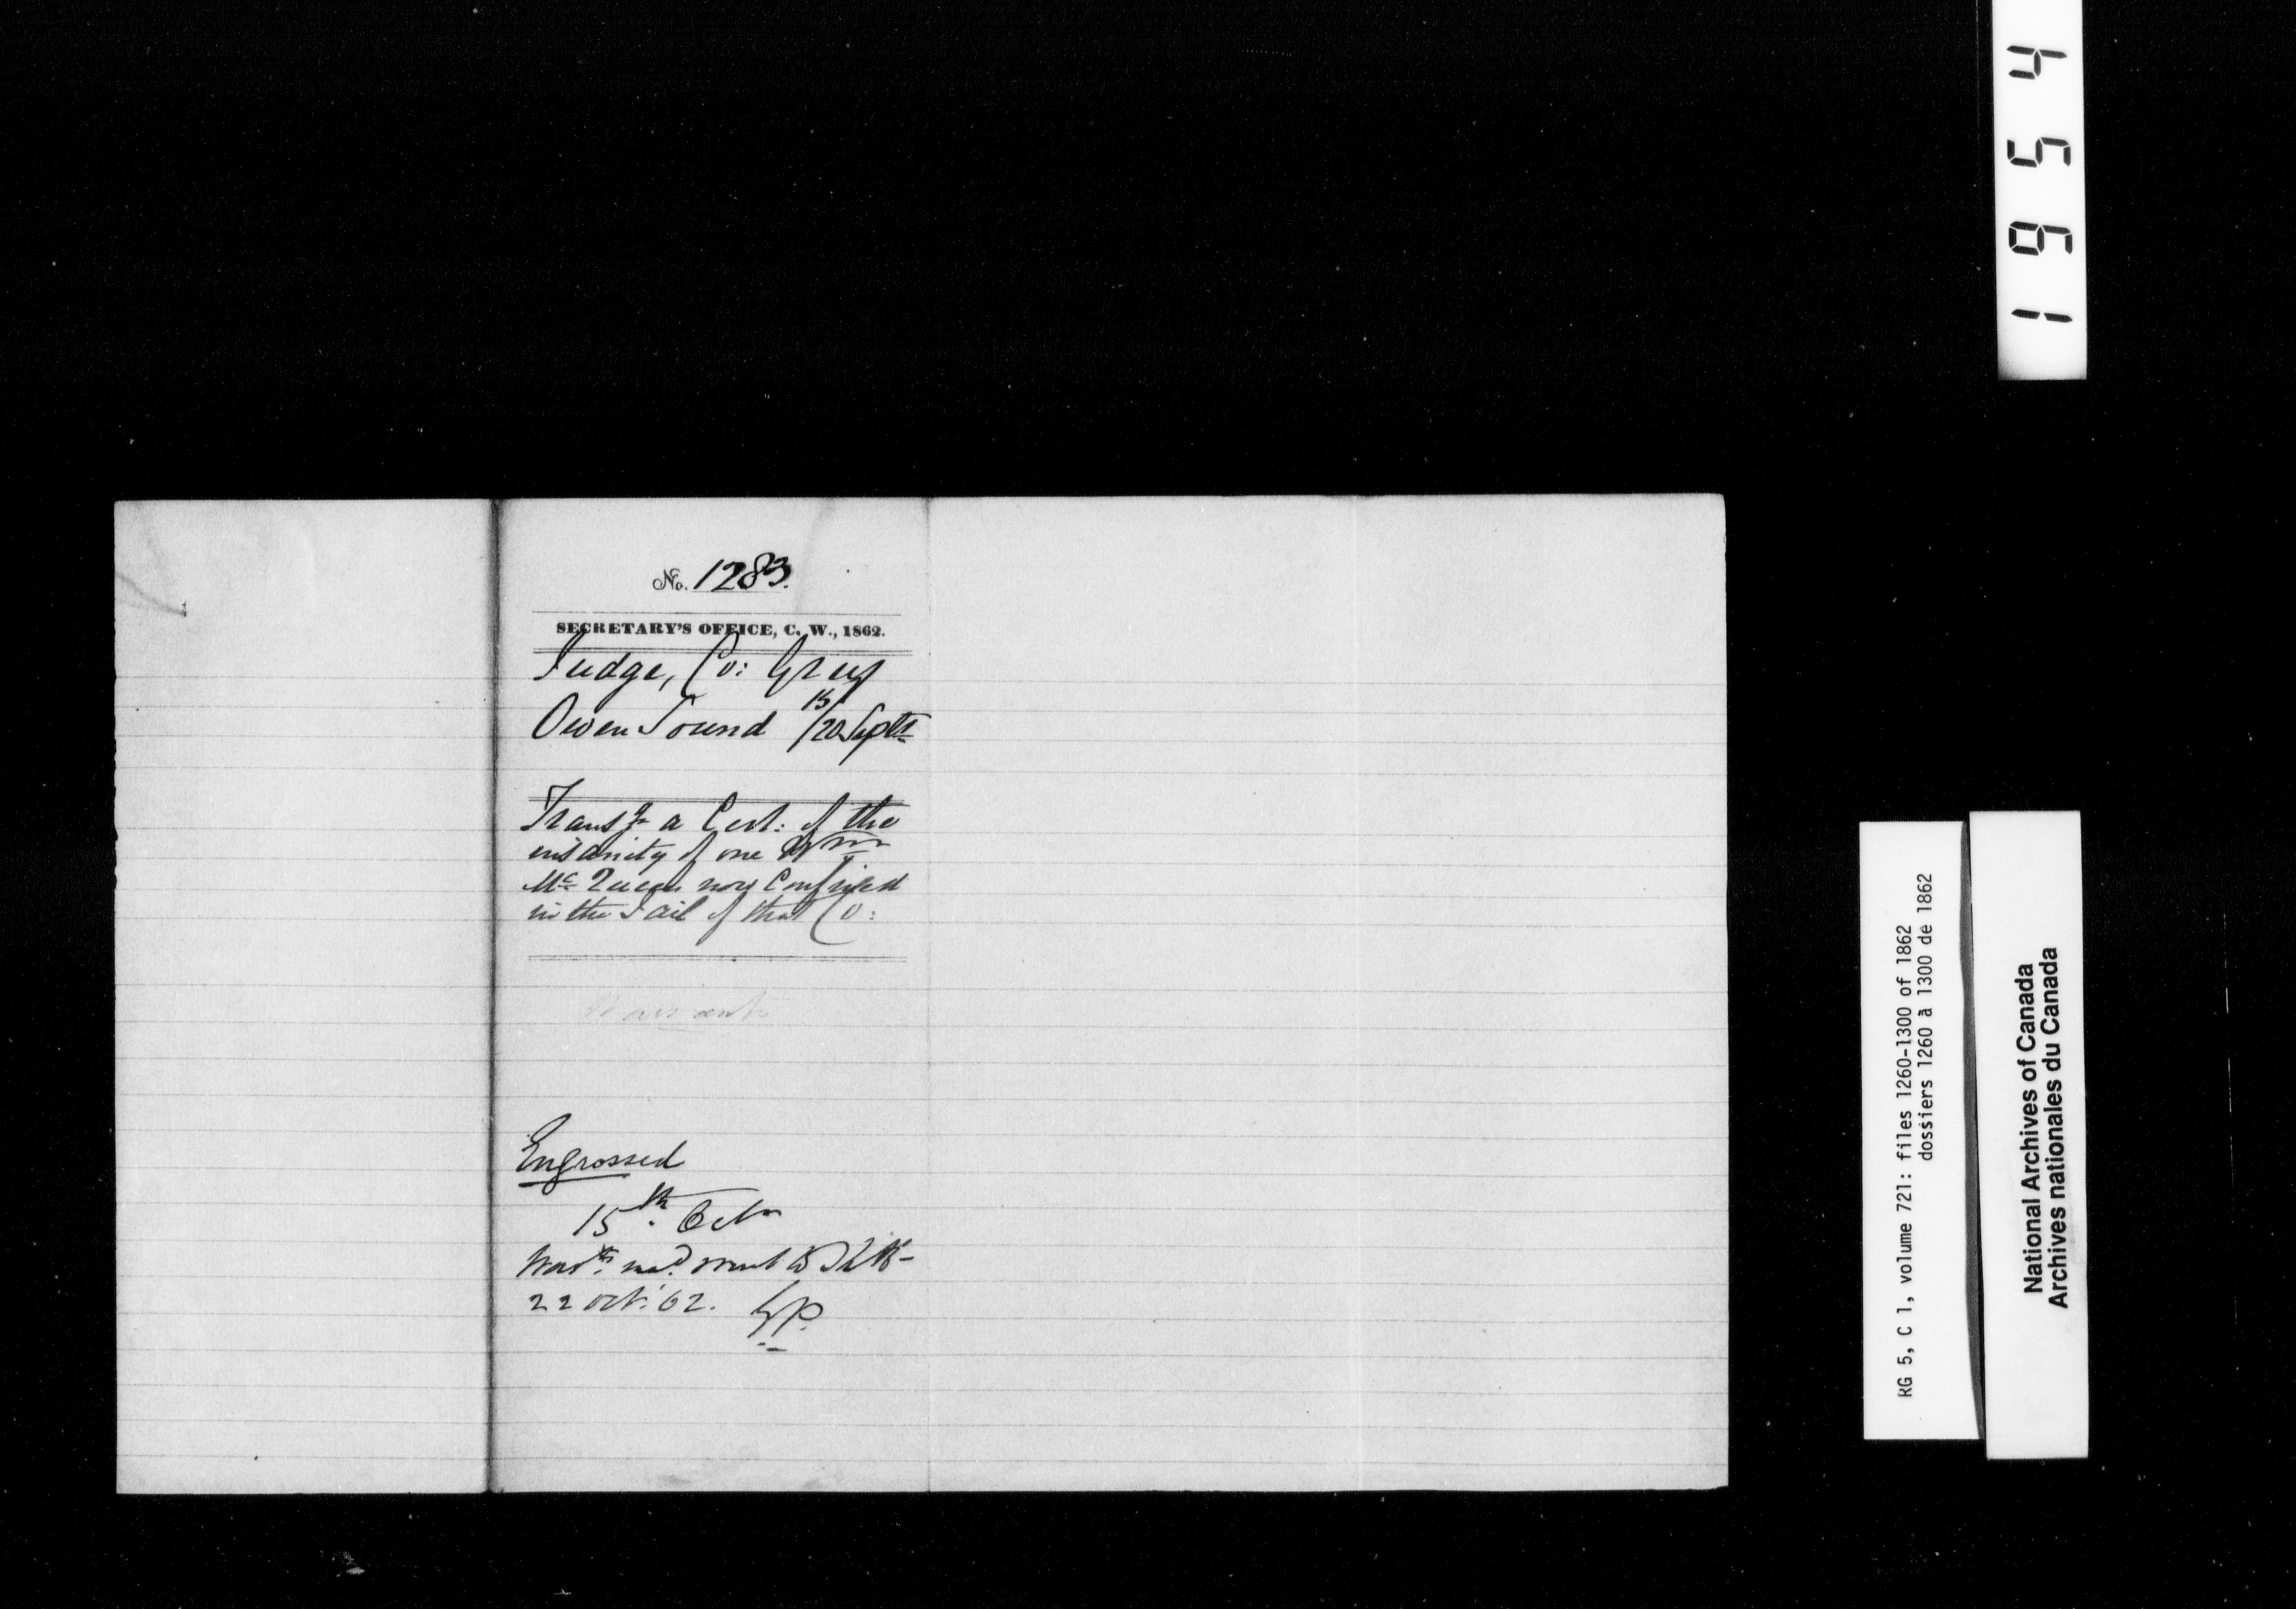 No. 1283.
SECRETARY'S OFFICE, C. W., 1862.
Judge, Co: Grey
Owen Sound 15/20 Septr
Transg a Cert: of the
insanity of one Wm
Mc Queen now Confined
in the Jail of that Co:
Warrant
Engrossed
15th Octr
22 Oct. 62. GP.
1954
RG 5, C 1, volume 721: files 1260-1300 of 1862
dossiers 1260 à 1300 de 1862
National Archives of Canada
Archives nationales du Canada